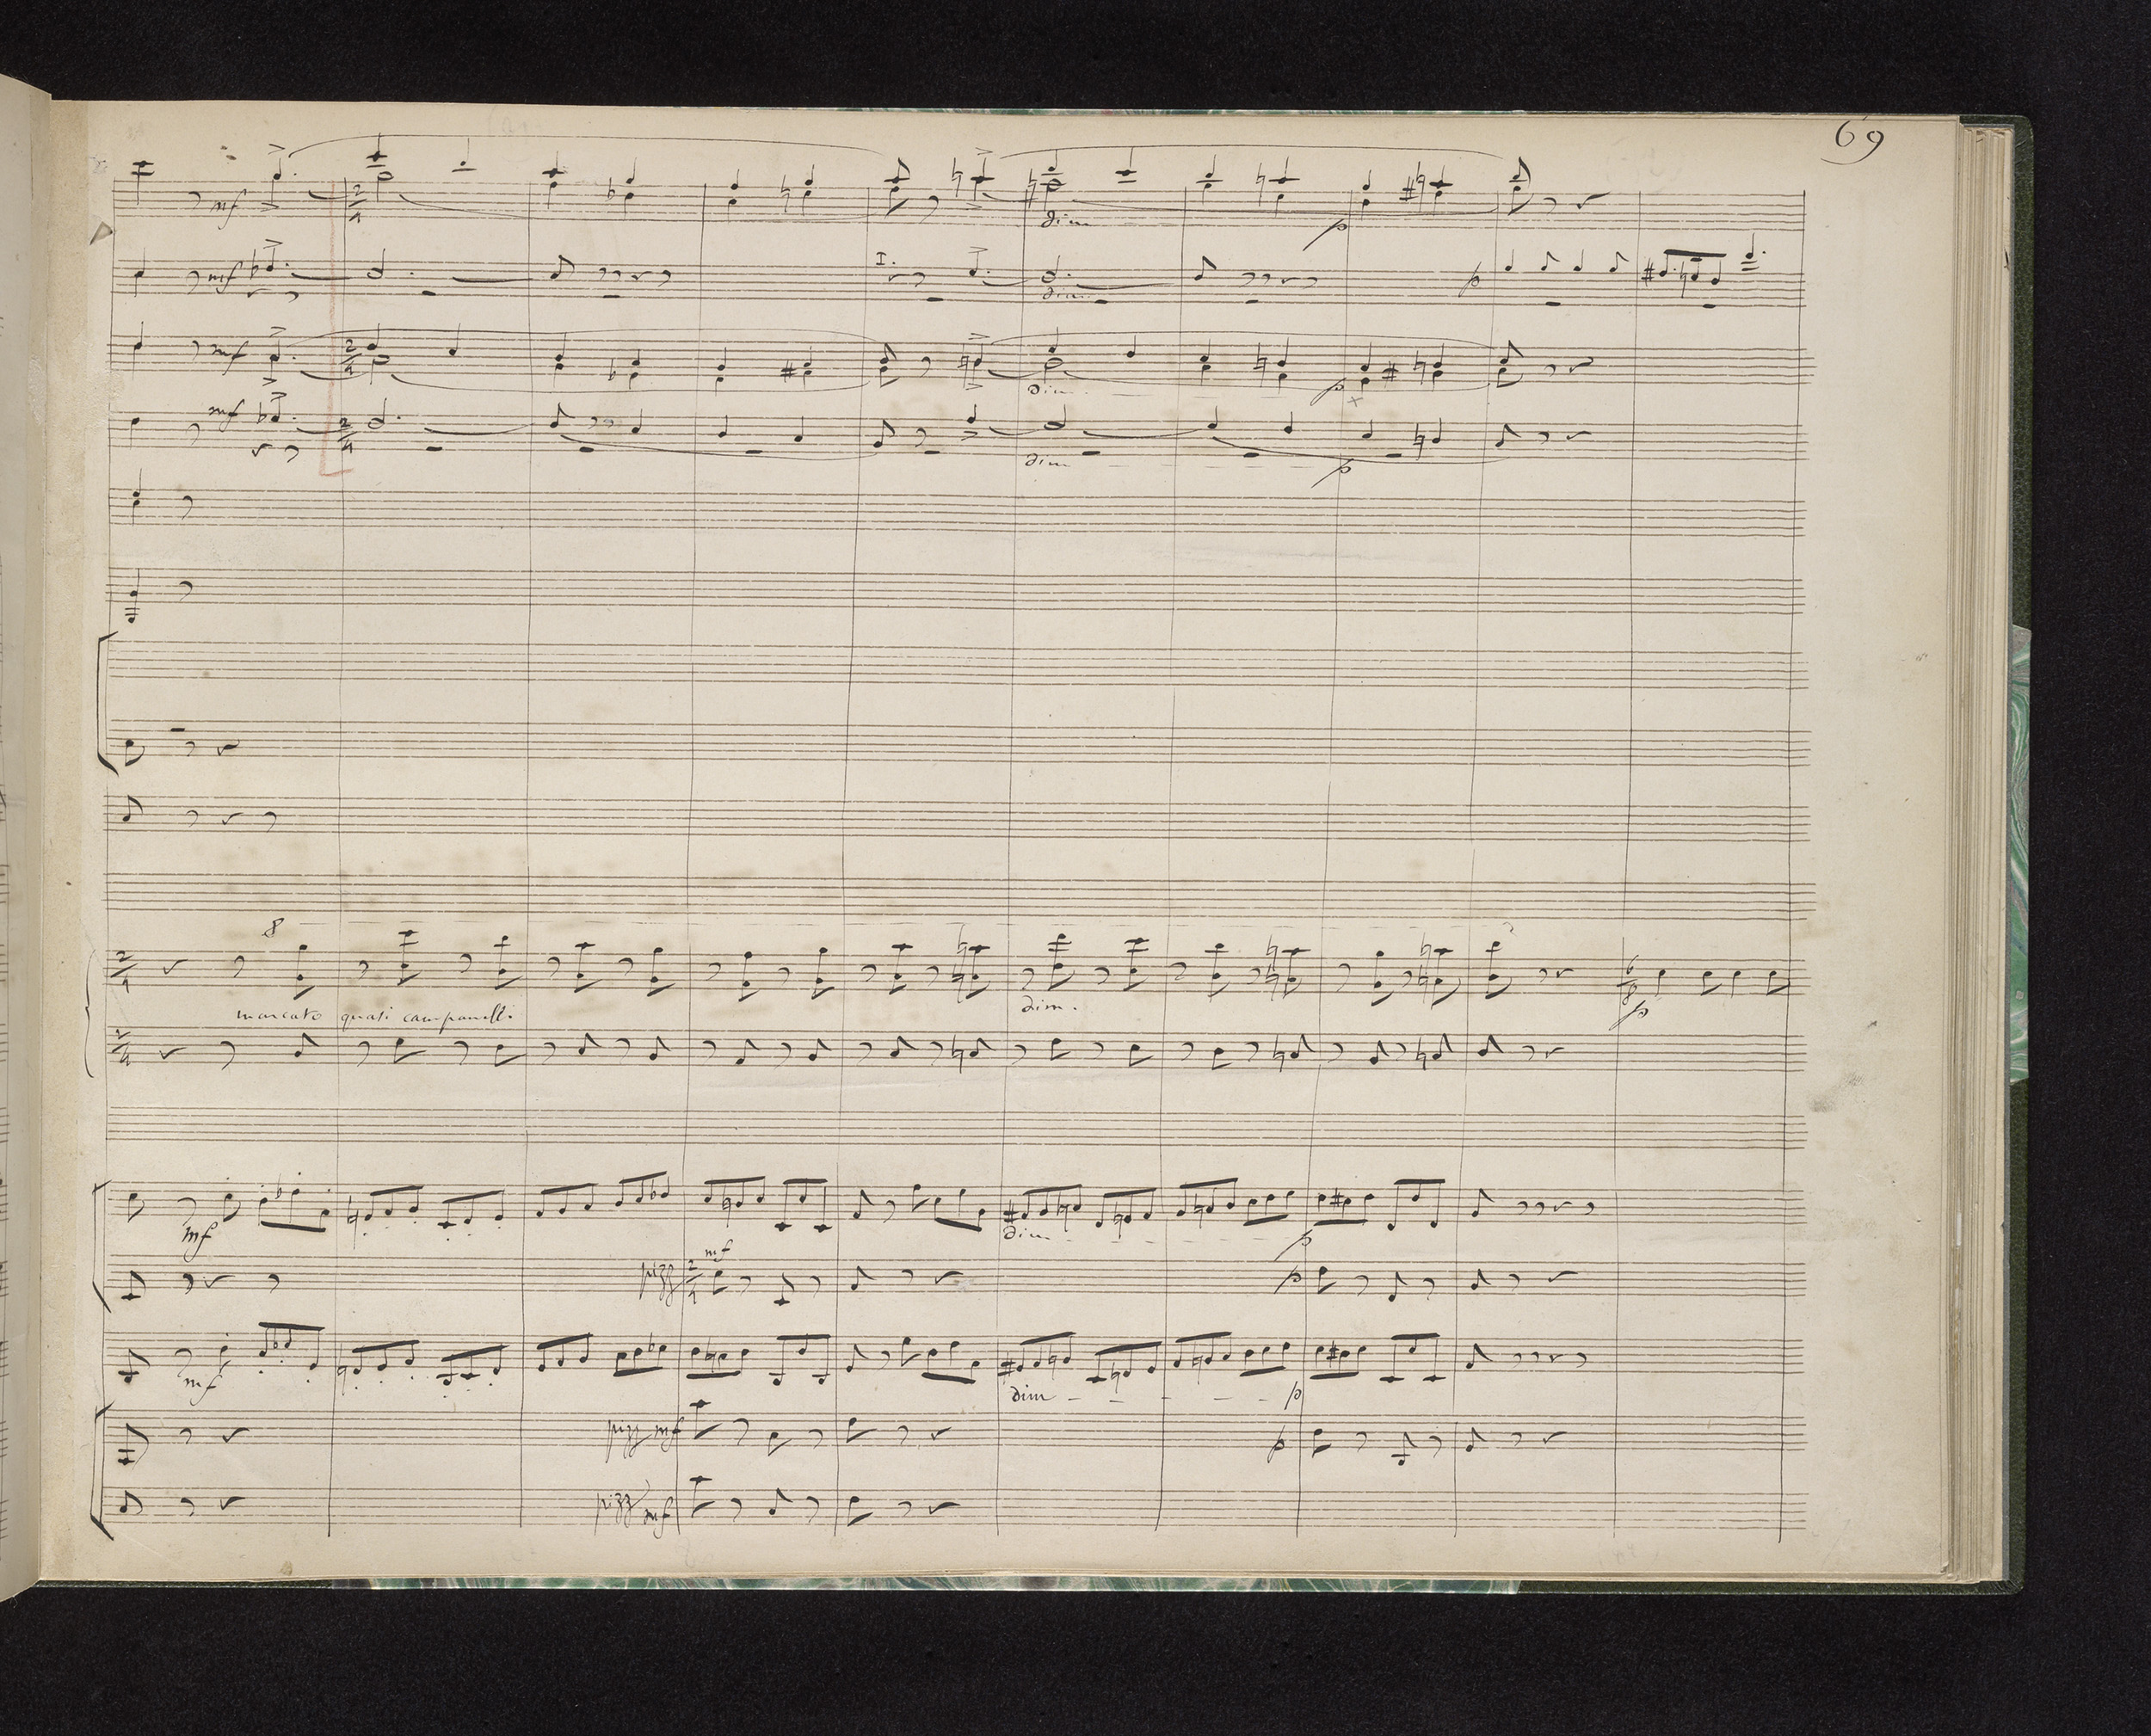 69
mf
2/4
dim
p
mf
I.
dim
p
mf
2/4
dim
p
mf
2/4
dim
p
8
2/4
dim.
6/8
p
marcato quasi campanelli.
2/4
mf
dim
p
pizz
mf
2/4
p
mf
dim
p
pizz mf
p
pizz mf